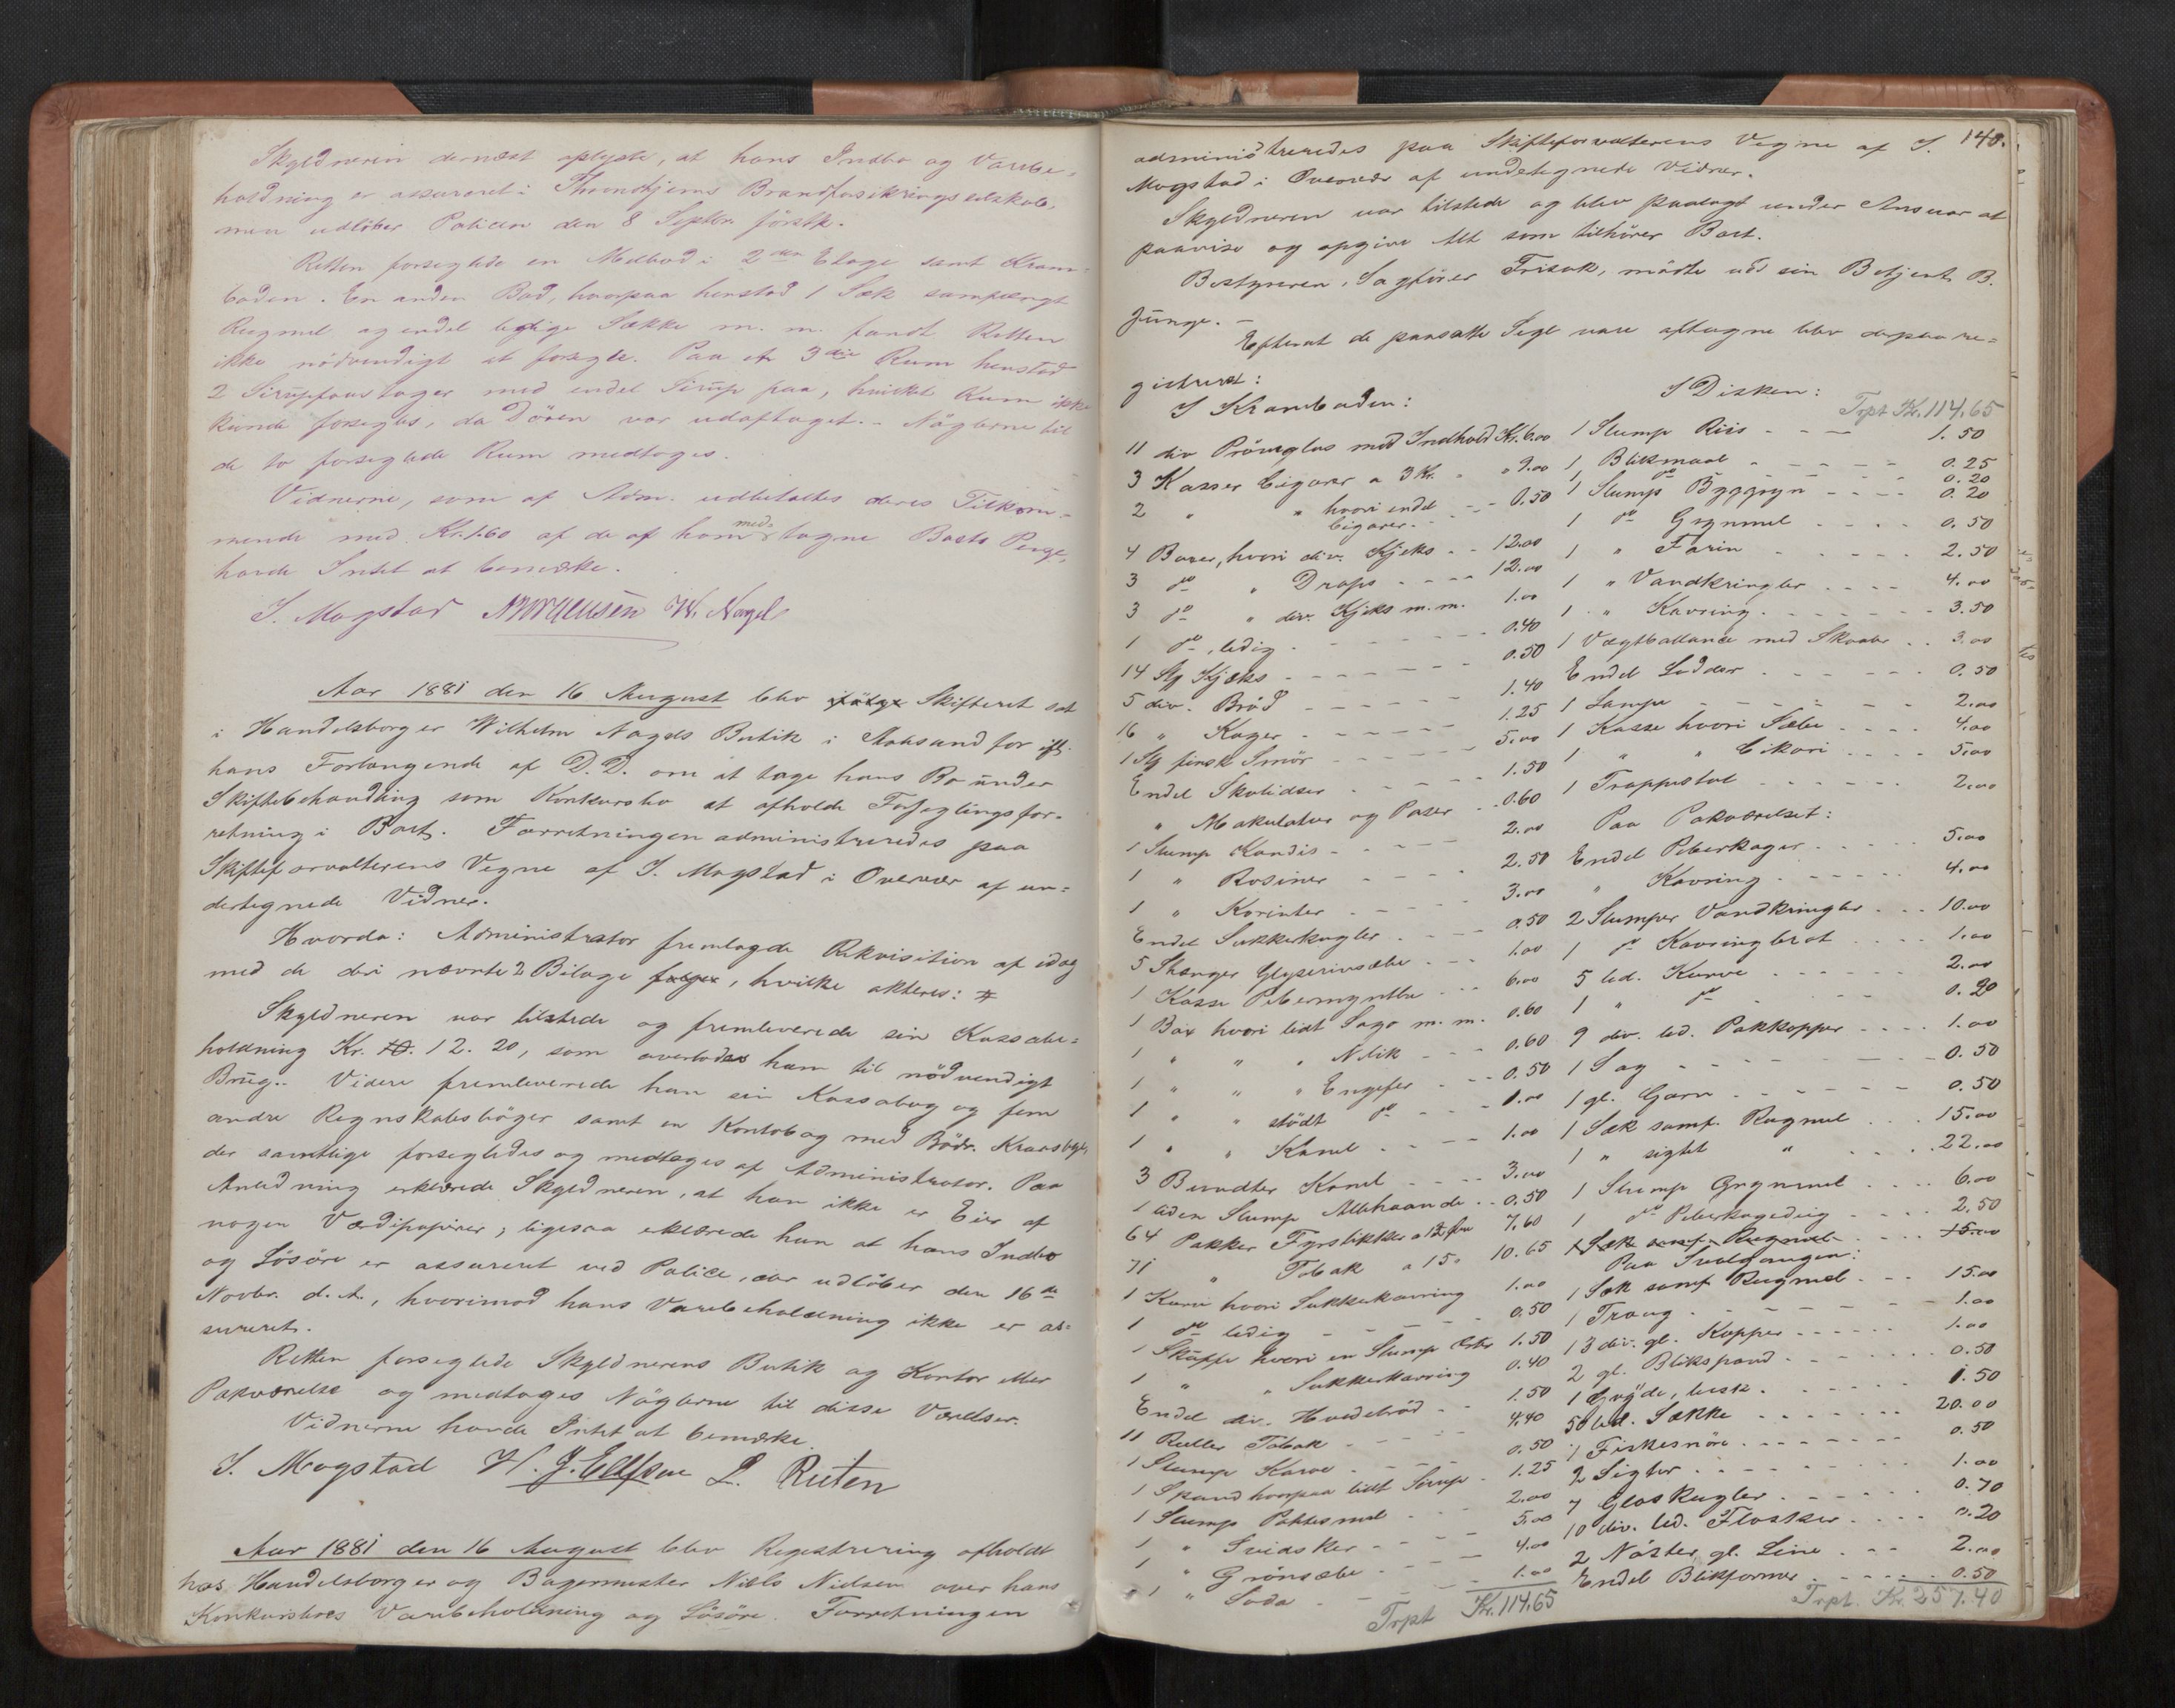 Skyldneren dernæst oplyste, at hans Indbo og Varebe-
holdning er assureret i Throndhjems Brandforsikringsselskab,
men udløber Policen den 8 Septbr. førstk.
Retten forseglede en Melbod i 2den Etage samt Kram-
boden. En anden Bod, hvorpaa henstod 1 Sæk samfængt
Rugmel og endel ledige Sække m. m. fandt Retten
ikke nödvendigt at forsegle. Paa et 3die Rum henstod
2 Sirupfoustager med endel Sirup paa, hvilket Rum ikke
kunde forsegles, da Dören var udaftaget. - Nöglerne til
de to forseglede Rum medtoges.
Vidnerne, som af Adm. udbetaltes deres Tilkom-
mende med Kr. 1.60 af de af ham medtagne Boets Penge,
havde Intet at bemærke.
J. Mogstad W. Nagel
Aar 1881 den 16 August blev Skifteret sat
i Handelsborger Wilhelm Nagels Butik i for ifl.
hans Forlangende af D.D. om at tage hans Bo under
Skiftebehandling som Konkursbo at afholde Forseglingsfor-
retning i Boet. Forretningen administreredes paa
Skifteforvalterens Vegne af J. Mogstad i Overvær af un-
dertegnede Vidner.
Hvorda: Administrator fremlagde Rekvisition af idag
med de deri nævnte 2 Bilage, hvilke akteres:
Skyldneren var tilstede og fremleverede sin Kassabe-
holdning Kr. 12.20, som overlodes ham til nödvendigt
Brug. Videre fremleverede han sin Kassabog og fem
andre Regnskabsböger samt en Kontobog med Brödr.
der samtlige forsegledes og medtoges af Administrator. Paa
Anledning erklærede Skyldneren, at han ikke er Eier af
nogen Værdipapirer; ligesaa erklærede han at hans Indbo
og Lösöre er assureret ved Police, der udlöber den 16de
Novbr. d. A., hvorimod hans Varebeholdning ikke er as-
sureret.
Retten forseglede Skyldnerens Butik og Kontor eller
Pakværelse og medtoges Nöglerne til disse Værelser.
Vidnerne havde Intet at bemærke.
J. Mogstad H. J. Ellefsen L. Ruten
Aar 1881 den 16 August blev Registrering afholdt
hos Handelsborger og Bagermester Niels Nielsen over hans
Konkursboes Varebeholdning og Lösöre. Forretningen
140.
administreredes paa Skifteforvalterens Vegne af J.
Mogstad i Overvær af undertegnede Vidner.
Skyldneren var tilstede og blev paalagt under Ansvar at
paavise og opgive Alt som tilhörer Boet.
Bestyreren, Sagförer Frisak, mödte ved sin Betjent B.
Junge. -
Efterat de paasatte Segl vare aftagne blev derpaa re-
gistreret:
I Kramboden:
11 div Pröveglas med Indhold Kr. 6.00
3 Kasser Cigarer a 3 Kr. " " 9.00
2 " " hvori endel - - 0.50
Cigarer.
4 Boxer, hvori div. Kjeks - - 12.00
3 do " Drops - - - - 12.00
3 do " div. Kjeks m. m. 1.00
1 do, ledig - - - - - 0.40
14 Stk Kjæks - - - - - 0.50
5 div. Bröd - - - - - 1.40
16 " Kager - - - - - 1.25
1 Stk finsk Smör - - - - 5.00
Endel Skolidser - - - - 1.50
" Makulatur og Poser - - 0.60
1 Slump Kandis - - - - 2.00
1 " Rosiner - - - - 2.50
1 " Korinter - - - - 3.00
Endel Sukkerkugler - - - - 0.50
5 Stænger Glyserinsæbe - - - 1.00
1 Kasse Pebermyntter - - - 6.00
1 Box hvori lidt Sago m. m. 0.60
1 " " " Nelik - - - 0.60
1 " " " Engefer - - - 0.50
1 " " stödt do - - - 1.00
1 " " Kanel - - - 1.00
3 Bundter Kanel - - - - 3.00
1 liden Slump Allehaande - - 0.50
64 Pakker Fyrstikker a 12 7.60
71 " Tobak a 15 " 10.65
1 Kurv hvori Sukkerkavring 1.00
1 do ledig - - - - 0.50
1 Skuffe hvori en Slump 1.50
1 " " Sukkerkavring 0.40
Endel div. Hvedebröd - - 1.50
11 Ruller Tobak - - - - 4.40
1 Slump Karve - - - - 0.50
1 Spand hvorpaa lidt Sirup - 1.25
1 Slump Potetesmel - - - 2.00
1 " Svidsker - - - 5.00
1 " Grönsæbe - - - 4.00
1 " Soda - - - - 1.00
Trpt Kr. 114.65
I Disken:
Trpt Kr. 114.65
1 Slump Riis - - - - 1.50
1 Blikmaal - - - - 0.25
1 do - - - - 0.20
1 Slump Byggryn - - - - 0.20
1 do Grynmel - - - - 0.50
1 " Farin - - - - 2.50
1 " Vandkringler - - - - 4.00
1 " Kavring - - - - 3.50
1 Vægtballance med Skaaler - - 3.00
Endel Lodder - - - - 0.50
1 Lampe - - - - 2.00
1 Kasse hvori Sæbe - - - - 4.00
1 " " Cikori - - - - 5.00
1 Trappestol - - - - 2.00
Paa Pakværelset:
Endel Peberkager - - - - 5.00
" Kavring - - - - 4.00
2 Slumper Vandkringler - - - 10.00
1 do Kavringbrot - - - - 1.00
5 led. Kurve - - - - 2.00
1 " do - - - - 0.20
9 div. led. Pakkopper - - - - 1.00
1 Sag - - - - 0.50
1 gl. Garn - - - - 0.50
1 Sæk samf. Rugmel - - - 15.00
1 " sigtet " - - - 22.00
1 Slump Grynmel - - - - 6.00
1 do Peberkagedeig - - - - 2.50
1 Sæk samf. Rugmel - - - 15.00
Paa Svalgangen:
1 Sæk samf. Rugmel - - - 15.00
1 Traug - - - - 1.00
13 div. gl. Kopper - - - - 1.00
2 gl. Blikspand - - - - 0.50
1 Gryde, - - - - 1.50
50 led. Sække - - - - 20.00
1 Fiskesnöre - - - - 0.50
2 Sigter - - - - 1.00
7 Glaskugler - - - - 0.70
10 div. led. Flasker - - - - 0.20
2 Nöster gl. Line - - - 2.00
Endel Blikformer - - - - 0.50
Trpt. Kr. 257.40